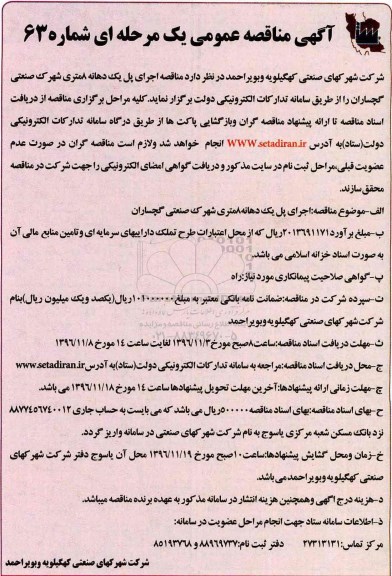 آگهی مناقصه عمومی یک مرحله ای شماره ۶۳
شرکت شهرکهای صنعتی کهگیلویه وبویراحمد در نظر دارد مناقصه اجرای پل یک دهانه ۸متری شهرک صنعتی
گچساران را از طریق سامانه تدارکات الکترونیکی دولت برگزار نماید. کلیه مراحل برگزاری مناقصه از دریافت
اسناد مناقصه تا ارائه پیشنهاد مناقصه گران وبازگشایی پاکت ها از طریق درگاه سامانه تدارکات الکترونیکی
دولت(ستاد)به آدرس WWW.setadiran.ir انجام خواهد شد ولازم است مناقصه گران در صورت عدم
عضویت قبلی،مراحل ثبت نام در سایت مذکور و دریافت گواهی امضای الکترونیکی را جهت شرکت در مناقصه
محقق سازند.
الف-موضوع مناقصه:اجرای پل یک دهانه۸متری شهرک صنعتی گچساران
ب-مبلغ برآورد۲۰۱۳۶۹۱۱۷۱ریال که از محل اعتبارات طرح تملک داراییهای سرمایه ای وتامین منابع مالی آن
به صورت اسناد خزانه اسلامی می باشد.
پ-گواهی صلاحیت پیمانکاری مورد نیاز:راه
ت-سپرده شرکت در مناقصه:ضمانت نامه بانکی معتبر به مبلغ۱۰۱۰۰۰۰۰۰ریال(یکصد ویک میلیون ریال)بنام
شرکت شهرکهای صنعتی کهگیلویه وبویراحمد
ث-مهلت دریافت اسناد مناقصه:ساعت۸صبح مورخ۱۳۹۶/۱۱/۳ لغایت ساعت ۱۴ مورخ ۱۳۹۶/۱۱/۸
ج-محل دریافت اسناد مناقصه:مراجعه به سامانه تدارکات الکترونیکی دولت(ستاد)به آدرسwww.setadiran.ir
چ-مهلت زمانی ارائه پیشنهادها:آخرین مهلت تحویل پیشنهادها ساعت ۱۴ مورخ ۱۳۹۶/۱۱/۱۸ می باشد.
ح-بهای اسناد مناقصه:بهای اسناد مناقصه۵۰۰۰۰۰ریال می باشد که می بایست به حساب جاری ۸۸۷۷۴۵۶۷۴۰۰۱۲
نزد بانک مسکن شعبه مرکزی یاسوج به نام شرکت شهرکهای صنعتی در سامانه واریز گردد.
خ-زمان ومحل گشایش پیشنهادها:ساعت۱۰صبح مورخ ۱۳۹۶/۱۱/۱۹ محل آن یاسوج دفتر شرکت شهرکهای
صنعتی کهگیلویه وبویراحمد می باشد.
د-هزینه درج آگهی وهمچنین هزینه انتشار در سامانه مذکور به عهده برنده مناقصه میباشد.
ذ-اطلاعات سامانه ستاد جهت انجام مراحل عضویت در سامانه:
مرکز تماس:۲۷۳۱۳۱۳۱ دفتر ثبت نام:۸۸۹۶۹۷۳۷ و ۸۵۱۹۳۷۶۸
شرکت شهرکهای صنعتی کهگیلویه وبویراحمد